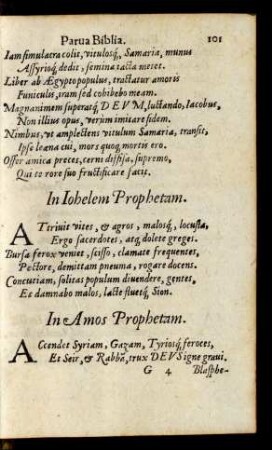 Parua Biblia. 101
Iam simulacra colit, vitulosq́, Samaria, munus
Assyrioq́ dedit, semina iacta metet.
Liber ab Ægypto populus, tractatur amoris
Funiculis, iram sed cohibebo meam.
Magnanimem superatq́ DEVM, luctando, Iacobus,
Non illius opus, verùm imitare fidem.
Nimbus, vt amplectens vitulum Samaria, transit,
Ipse leæna cui, mors quoq́ mortis ero.
Offer amica preces, cerni dissisa, supremo,
Qui te rore suo fructificare facit.
In Iohelem Prophetam.
ATteriuie vites, & agros, malosq́, locusta,
Ergo sacerdotes, atq́ dolete greges.
Bursa ferox veniet, scisso, clamate frequentes,
Pectore, demittam pneuma, rogare docens.
Concutiam, solitas populum diuendere, gentes,
Et damnabo malos, lacte fluetq́ Sion.
In Amos Prophetam.
ACcendet Syriam, Gazam, Tyriosq́, feroces,
Et Seir, & Rabbã, trux DEVS igne graui.
G 4 Blasphe-